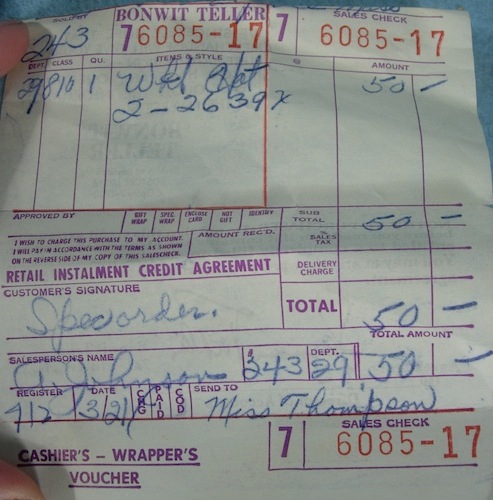 SOLD BY BONWIT TELLER SALES CHECK
243 7 6085-17 7 6085-17
DEPT. CLASS QU. ITEMS & STYLE @ AMOUNT
29 810 1 50 -
2-2639X
APPROVED BY GIFT WRAP SPEC. WRAP ENCLOSE CARD NOT GIFT IDENTITY SUB TOTAL 50 -
I WISH TO CHARGE THIS PURCHASE TO MY ACCOUNT. AMOUNT REC'D. % SALES TAX
I WILL PAY IN ACCORDANCE WITH THE TERMS AS SHOWN
ON THE REVERSE SIDE OF MY COPY OF THIS SALESCHECK.
RETAIL INSTALMENT CREDIT AGREEMENT DELIVERY CHARGE
CUSTOMER'S SIGNATURE
Spec order. TOTAL 50 -
TOTAL AMOUNT
SALESPERSON'S NAME # DEPT.
Johnson 243 29 50 -
REGISTER DATE CHG PAID COD SEND TO
412 3/21/ Miss Thompson
SALES CHECK
CASHIER'S - WRAPPER'S 7 6085-17
VOUCHER